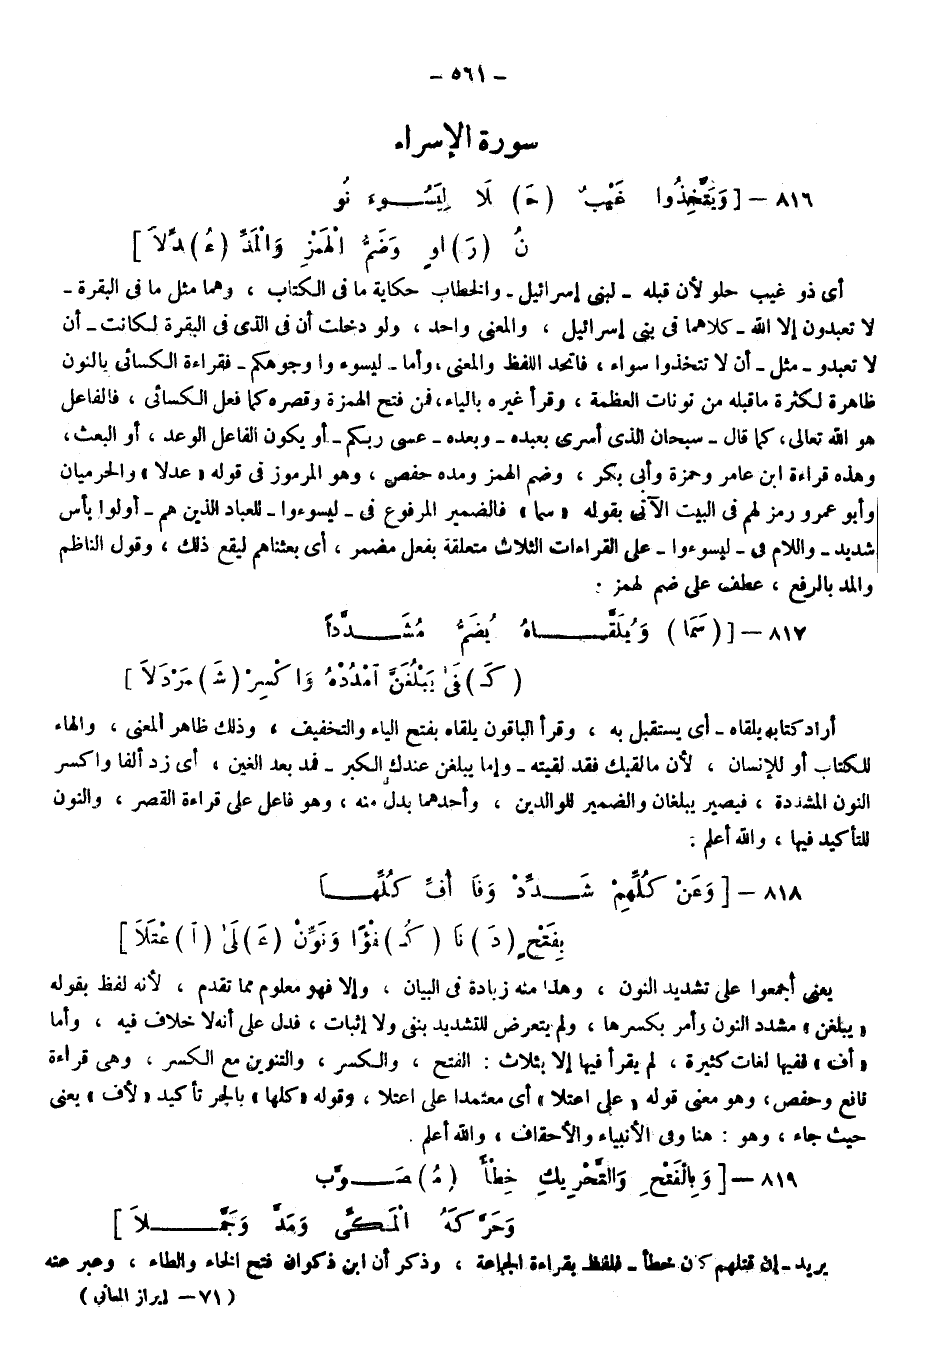 - ٥٦١ -
سورة الإسراء
٨١٦ - [ وَيَتَّخِذُوا غَيْبٌ (حَ) لَا لِيَسُوءَ نُو
نُ (رَ) اوٍ وَضَمُّ الْهَمْزِ وَالْمَدِّ (عُ) دِّلَا ]
أى ذو غيب حلو لأن قبله - لبنى إسرائيل - والخطاب حكاية ما فى الكتاب ، وهما مثل ما فى البقرة -
لا تعبدون إلا الله - كلاهما فى بنى إسرائيل ، والمعنى واحد ، ولو دخلت أن فى الذى فى البقرة لكانت - أن
لا تعبدو - مثل - أن لا تتخذوا سواء ، فاتحد اللفظ والمعنى ، وأما - ليسوء وا وجوهكم - فقراءة الكسائى بالنون
ظاهرة لكثرة ماقبله من نونات العظمة ، وقرأ غيره بالياء ، فمن فتح الهمزة وقصره كما فعل الكسائى ، فالفاعل
هو الله تعالى ، كما قال - سبحان الذى أسرى بعبده - وبعده - عسى ربكم - أو يكون الفاعل الوعد ، أو البعث ،
وهذه قراءة ابن عامر وحمزة وأبى بكر ، وضم الهمز ومده حفص ، وهو المرموز فى قوله « عدلا » والحرميان
وأبو عمرو رمز لهم فى البيت الآتى بقوله « سما » فالضمير المرفوع فى - ليسوءوا - للعباد الذين هم - أولوا بأس
شديد - واللام فى - ليسوءوا - على القراءات الثلاث متعلقة بفعل مضمر ، أى بعثناهم ليقع ذلك ، وقول الناظم
والمد بالرفع ، عطف على ضم لهمز :
٨١٧ - [ (سَمَا) وَيُلَقَّاهُ يُضَمُّ مُشَدَّداً
(كَـ) فَى يَبْلُغَنَّ امْدُدْهُ وَاكْسِرْ (شَ) مَرْدَلَا ]
أراد كتابه يلقاه - أى يستقبل به ، وقرأ الباقون يلقاه بفتح الياء والتخفيف ، وذلك ظاهر المعنى ، والهاء
للكتاب أو للإنسان ، لأن مالقيك فقد لقيته - وإما يبلغن عندك الكبر - فمد بعد الغين ، أى زد ألفا واكسر
النون المشددة ، فيصير يبلغان والضمير للوالدين ، وأحدهما بدل منه ، وهو فاعل على قراءة القصر ، والنون
للتأكيد فيها ، والله أعلم :
٨١٨ - [ وَعَنْ كُلِّهِمْ شَدِّدْ وَفَا أُفِّ كُلِّهَا
بِفَتْحٍ (دَ) نَا (كُـ) فْؤًا وَنَوِّنْ (عَ) لَى (ا) عْتَلَا ]
يعنى أجمعوا على تشديد النون ، وهذا منه زيادة فى البيان ، وإلا فهو معلوم مما تقدم ، لأنه لفظ بقوله
« يبلغن » مشدد النون وأمر بكسرها ، ولم يتعرض للتشديد بنفى ولا إثبات ، فدل على أنه لا خلاف فيه ، وأما
« أف » ففيها لغات كثيرة ، لم يقرأ فيها إلا بثلاث : الفتح ، والكسر ، والتنوين مع الكسر ، وهى قراءة
نافع وحفص ، وهو معنى قوله « على اعتلا » أى معتمدا على اعتلا ، وقوله « كلها » بالجر تأكيد « لأف » يعنى
حيث جاء ، وهو : هنا وفى الأنبياء والأحقاف ، والله أعلم .
٨١٩ - [ وَبِالْفَتْحِ وَالتَّحْرِيكِ خِطْأً (مُ) صَوَّب
وَحَرَّكَهُ الْمَكِّى وَمَدَّ وَجَمَّلَا ]
يريد - إن قتلهم كان خطأ - فلفظ بقراءة الجماعة ، وذكر أن ابن ذكوان فتح الخاء والطاء ، وعبر عنه
( ٧١ - إبراز المعانى )